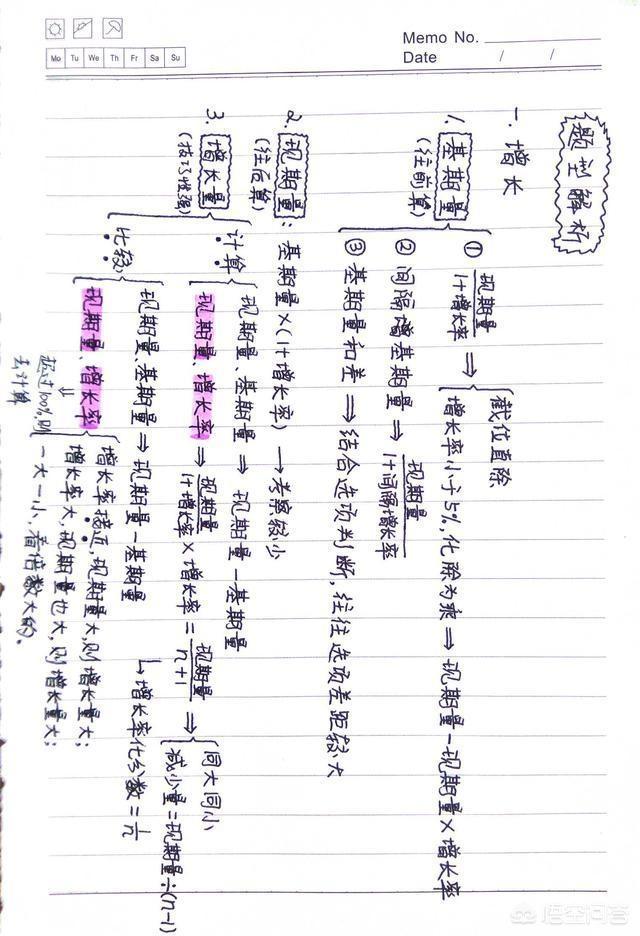 Memo No.
Date / /
Mo Tu We Th Fr Sa Su
题型解析
一. 增长
1. 基期量
(往前算)
① 现期量/1+增长率 ⇒
截位直除
增长率小于5%,化除为乘 ⇒ 现期量-现期量×增长率
② 间隔增基期量 ⇒ 现期量/1+间隔增长率
③ 基期量和差 ⇒ 结合选项判断,往往选项差距较大
2. 现期量: 基期量×(1+增长率) → 考察较小
(往后算)
3. 增长量
(技巧性强)
计算
现期量、基期量 ⇒ 现期量-基期量
现期量、增长率 ⇒ 现期量/1+增长率 × 增长率 = 现期量/n+1 ⇒
同大同小
减少量=现期量÷(n-1)
↳ 增长率化分数=1/n
比较
现期量、基期量 ⇒ 现期量-基期量
现期量、增长率
增长率接近,现期量大,则增长量大;
增长率大,现期量也大,则增长量大;
一大一小,看倍数大的。
↓
超过100%,则
去计算
悟空问答